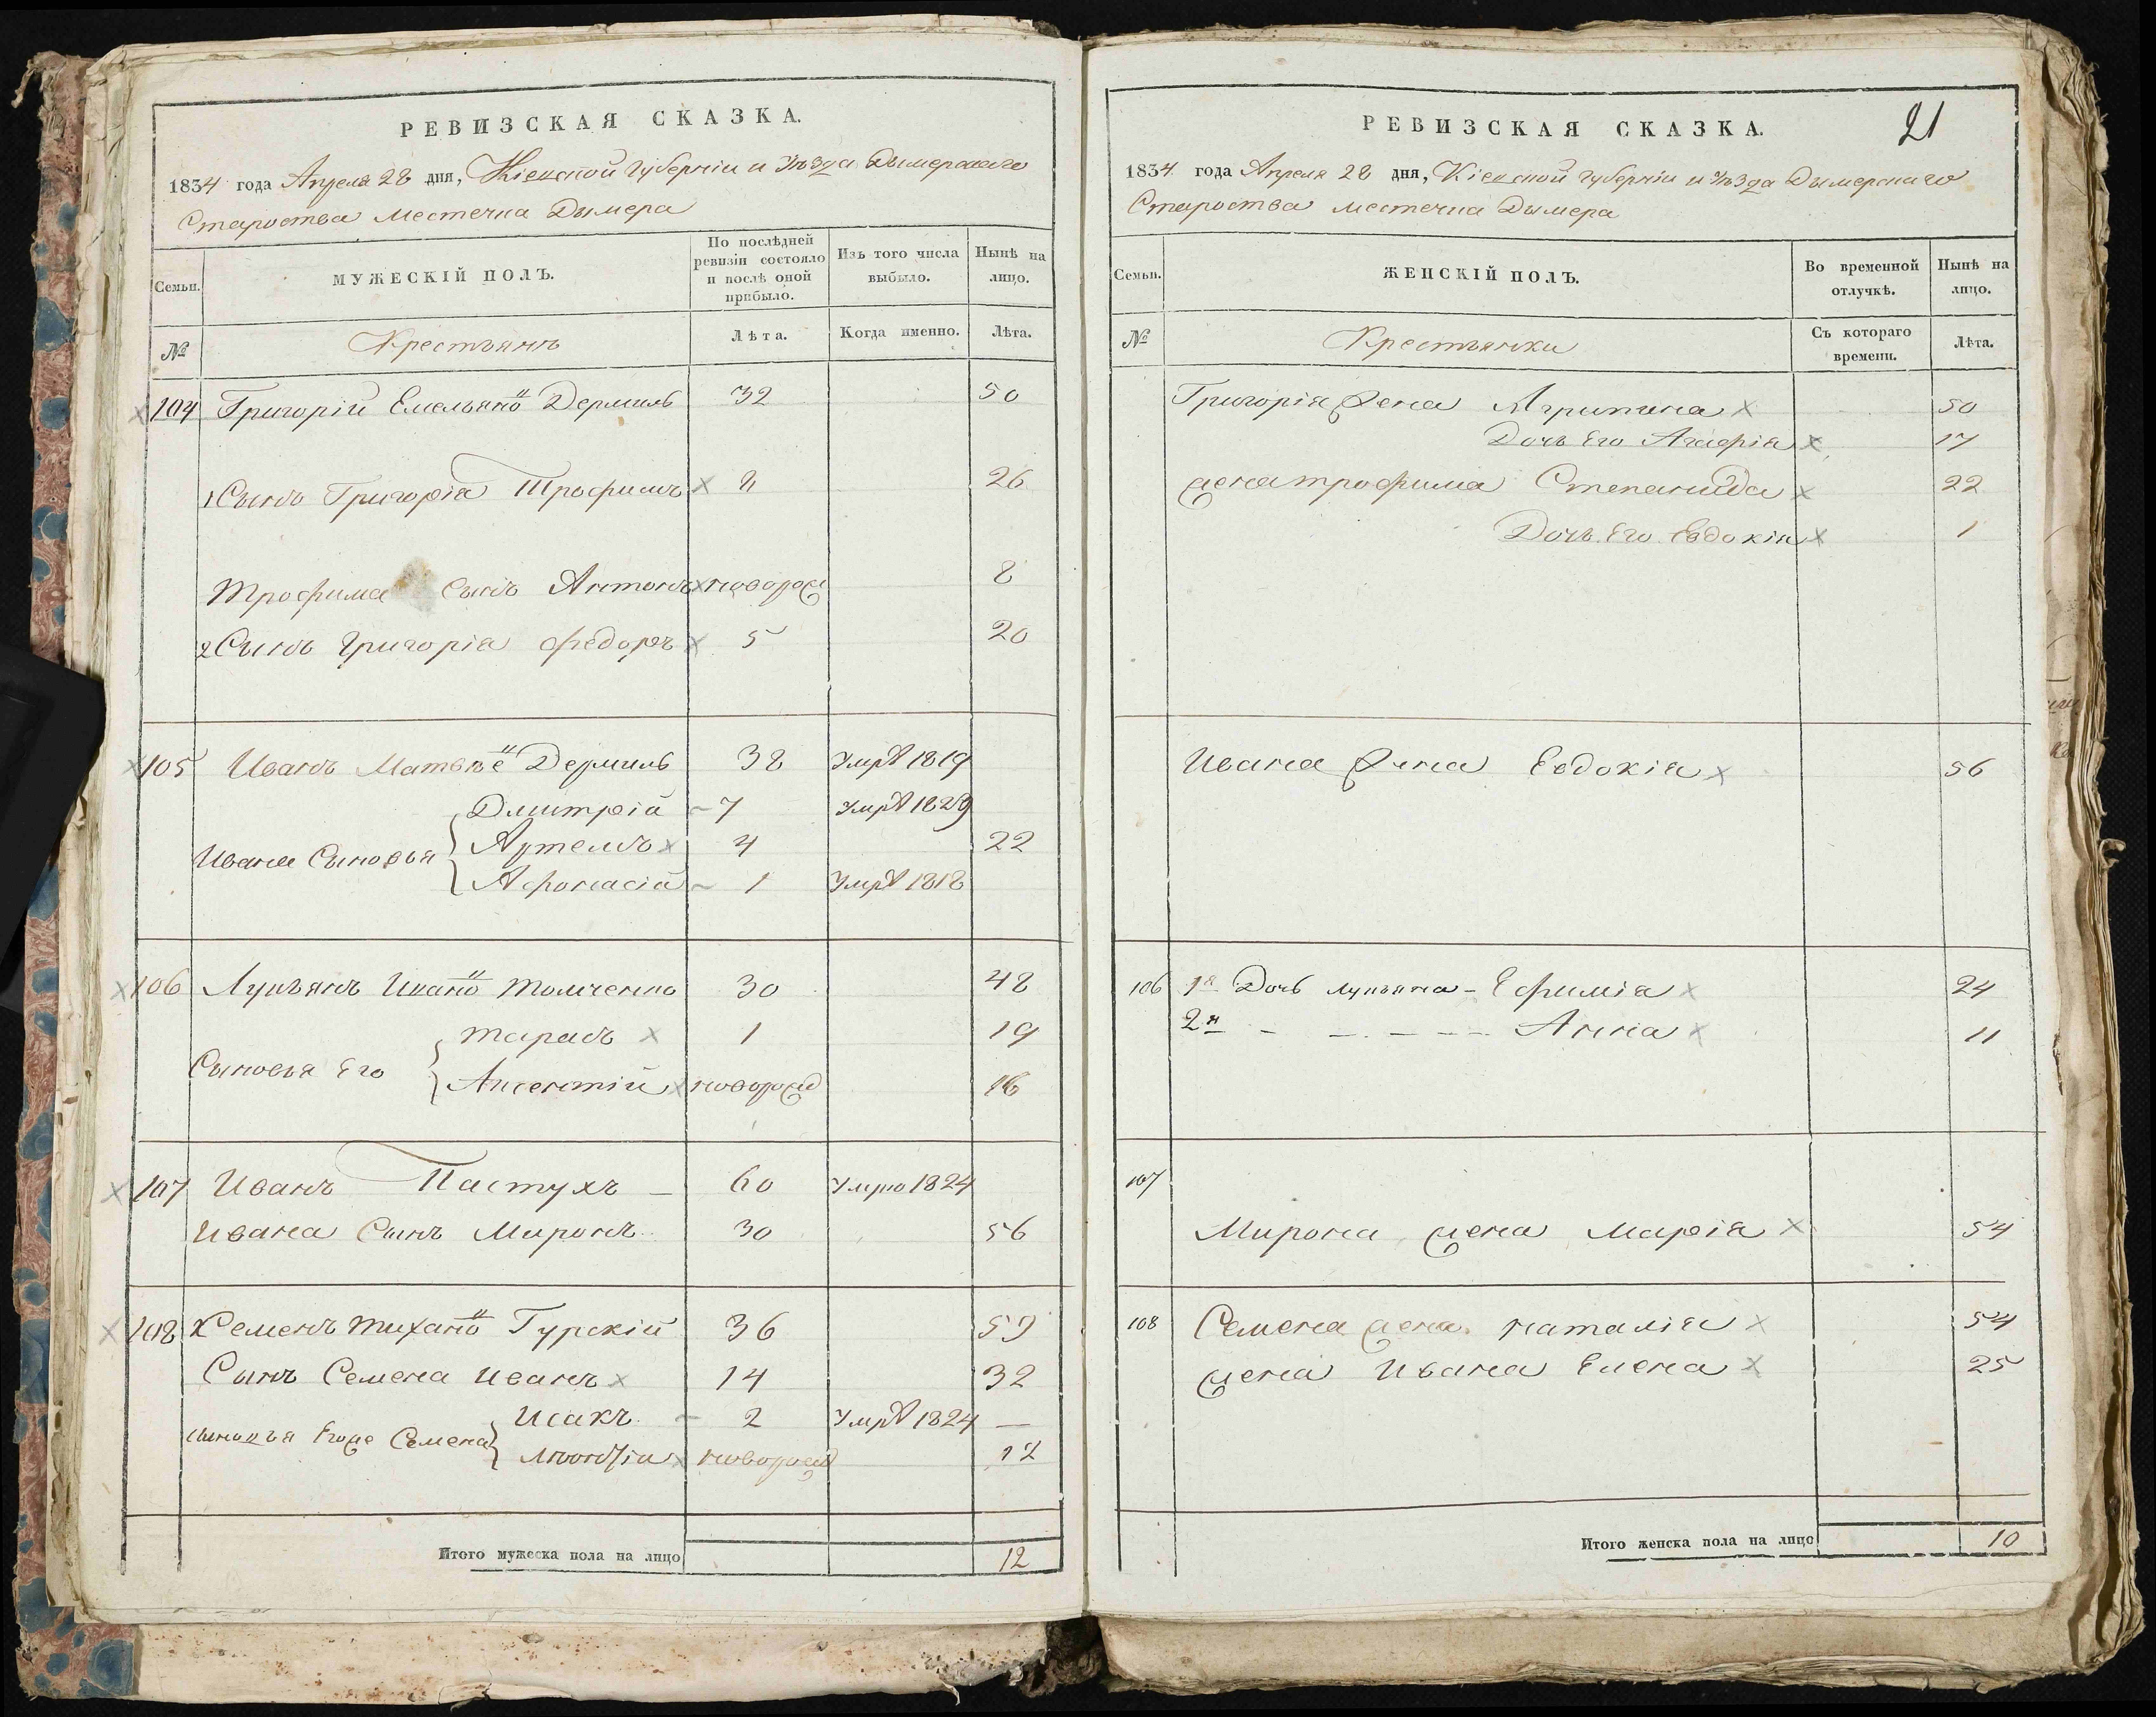 РЕВИЗСКАЯ СКАЗКА.
1834 года Апреля 28 дня, Кіевской Губерніи и уѣзда Дымерскаго
Староства местечка Дымера
Семьи.
МУЖЕСКІЙ ПОЛЪ.
По послѣдней ревизіи состояло и послѣ оной прибыло.
Изъ того числа выбыло.
Нынѣ на лицо.
№
Крестьянъ
Лѣта.
Когда именно.
Лѣта.
104 Григорій Емельяно Дермиль 32 50
1 Сынъ Григорія Трофимъ 26
Трофима Сынъ Антонъ новорож 8
2 Сынъ Григорія Федоръ 5 20
105 Иванъ Матвѣе Дермиль 38 Умре 1819
Дмитрій 7 Умре 1829
Ивана Сыновья Артемъ 4 22
Афонасій 1 Умре 1818
106 Лукъянъ Ивано Толченко 30 48
Тарасъ 1 19
Сыновья Его Авсентій новорожд 16
107 Иванъ Пастухъ 60 Умре 1824
Ивана Сынъ Миронъ 30 56
108 Семенъ Тихано Гурскій 36 59
Сынъ Семена Иванъ 14 32
Исакъ 2 Умре 1824 —
сыновья Егоже Семена
новорожд 12
Итого мужеска пола на лицо 12
21
РЕВИЗСКАЯ СКАЗКА.
1834 года Апреля 28 дня, Кіевской губерніи и уѣзда Дымерскаго
Староства местечка Дымера
Семьи.
ЖЕНСКІЙ ПОЛЪ.
Во временной отлучкѣ.
Нынѣ на лицо.
№
Крестьянки
Съ котораго времени.
Лѣта.
Григорія жена Агрипина 50
Дочь Его Агафія 17
жена трофима Степанида 22
Дочь Его Евдокія 1
Ивана жена Евдокія 56
106 1я Дочь лукъяна - Ефимія 24
2я - - - - - Анна 11
107
Мирона жена Марія 54
108 Семена жена наталія 54
жена Ивана Елена 25
Итого женска пола на лицо 10